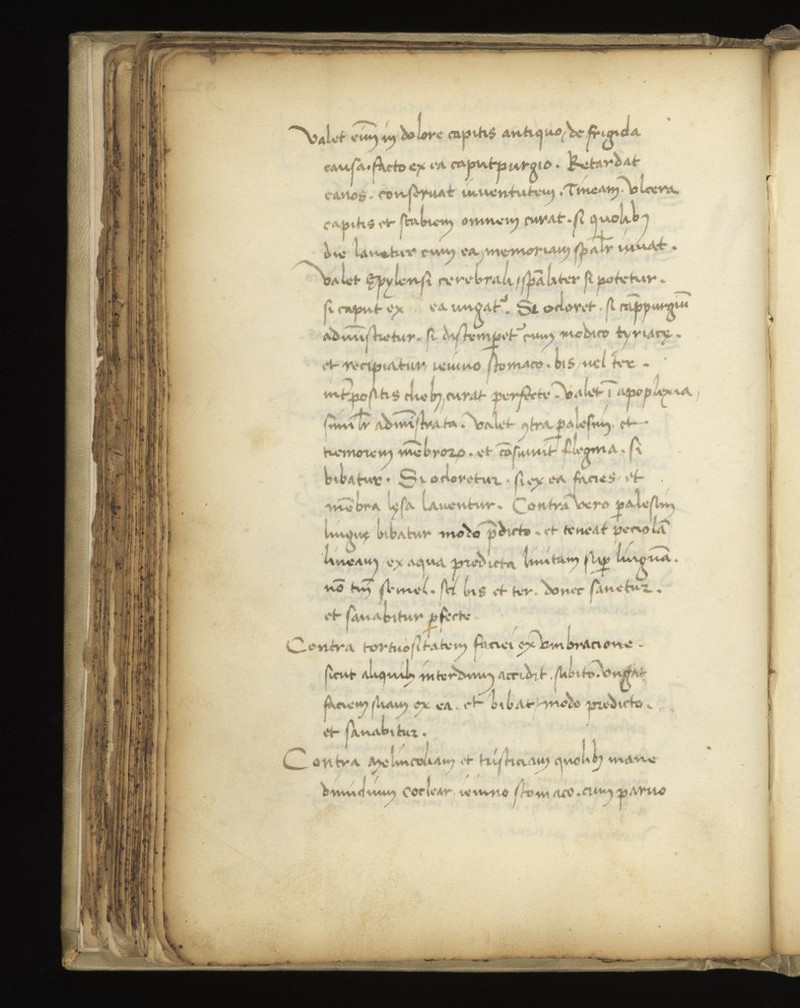 Valet eim̄ in dolore capitis antiquo, de frigida
causa. facto ex ea caputpurgio. Retardat
canos. conseruat iuuentutem. Tineam. Vlcera
capitis et scabiem omnem curat. si quolibꝫ
die lauetur cum ea, memoriam sp̄alr̄ iuuat.
Valet Epylensi cerebrali, sp̄aliter si potetur.
si caput ex ea ungat᷑. Si odoret. si cap̄purgiū
adminis̄tretur. si distemperet᷑ cum modico tyriace.
et recipiatur ieiuno stomaco. bis uel ter.
int̄positis diebꝫ, curat perfecte. Valet ī apoplexia,
simil̄r adminīstrata. Valet ꝯtra palesim, et
tremorem mēbroꝝ. et cōsumit flegma. si
bibatur. Si odoretur. si ex ea facies et
mēbra lęsa lauentur. Contra uero palesim
linguę bibatur modo p̄dicto. et teneat peciolā
lineam ex aqua predicta linitam sup̄ linguā.
nō tm̄ semel. sed bis et ter. donec sanetur.
et sanabitur ꝑfecte.
Contra tortuositatem faciei ex Vmbracione.
sicut aliquibꝫ interdum accidit. subito. Vngat
faciem suam ex ea. et bibat modo predicto.
et sanabitur.
Contra melincoliam et tristiciam quolibꝫ mane
dimidium coclear ieiuno stomaco. cum paruo